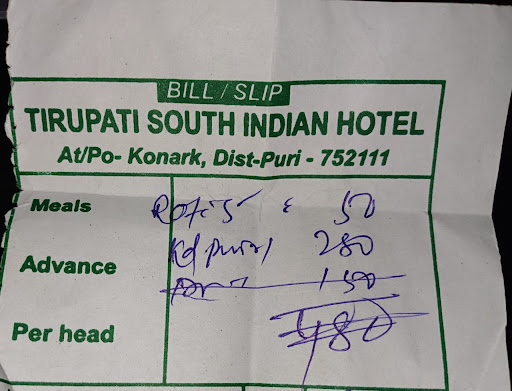 BILL / SLIP
TIRUPATI SOUTH INDIAN HOTEL
At/Po- Konark, Dist-Puri - 752111
Meals Roti 5 50
280
Advance 150
480
Per head